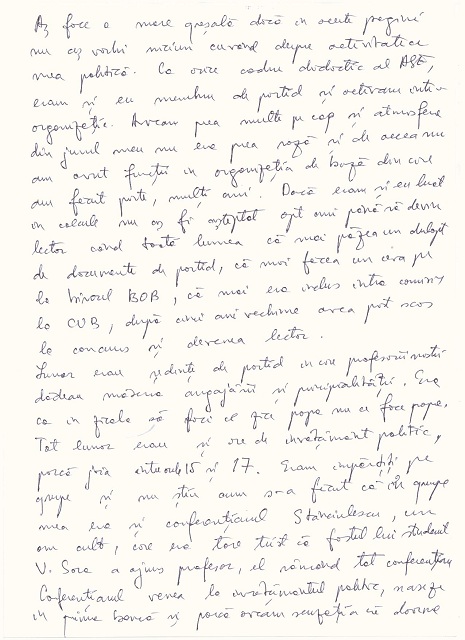 Aș face o mare greșală dacă in aceste pagini
nu aș vorbi niciun cuvand despre activitatea
mea politică. Ca orice cadru didactic al ASE,
eram și eu membru de partid și activam intr-o
organizație. Aveam prea multe pe cap și atmosfera
din jurul meu nu era prea roză și de aceea nu
am avut funcții in organizația de bază din care
am făcut parte, mulți ani. Dacă eram și eu luat
in calcule nu aș fi așteptat opt ani până să devin
lector cand toată lumea că mai păzea un dulap
de documente de partid, că mai făcea un ceva pe
la biroul BOB, că mai era inclus intr-o comisie
la CUB, după cinci ani vechime avea post scos
la concurs și devenea lector.
Lunar erau ședințe de partid in care profesorii noștri
dădeau măsura angajării și principialității. Era
ca in fabula să faci ce zice popa nu ce face popa.
Tot lunar erau și ore de invățământ politic,
parcă joia intre orele 15 și 17. Eram impărțiți pe
grupe și nu știu cum s-a făcut că in grupa
mea era și conferențiarul Stanciulescu, un
om cult, care era tare trist că fostul lui student
V. Sora a ajuns profesor, el rămând tot conferențiar
Conferențiarul venea la invățământul politic, se așeza
in prima bancă și parcă aveam senzația că doarme